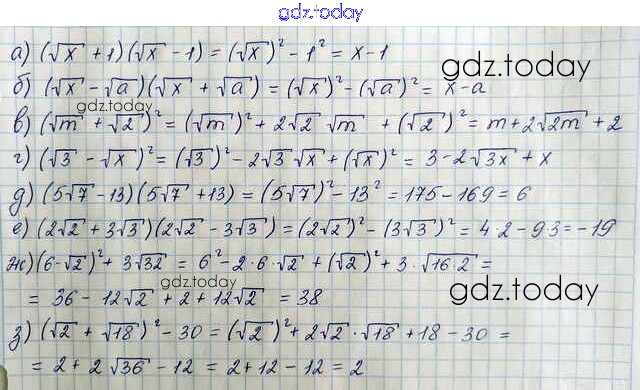 gdz.today
а) (√x + 1)(√x - 1) = (√x)² - 1² = x - 1
gdz.today
б) (√x - √a)(√x + √a) = (√x)² - (√a)² = x - a
gdz.today
в) (√m + √2)² = (√m)² + 2√2 √m + (√2)² = m + 2√2m + 2
г) (√3 - √x)² = (√3)² - 2√3 √x + (√x)² = 3 - 2√3x + x
д) (5√7 - 13)(5√7 + 13) = (5√7)² - 13² = 175 - 169 = 6
е) (2√2 + 3√3)(2√2 - 3√3) = (2√2)² - (3√3)² = 4·2 - 9·3 = -19
ж) (6 - √2)² + 3√32 = 6² - 2·6·√2 + (√2)² + 3·√16·2 =
gdz.today
= 36 - 12√2 + 2 + 12√2 = 38
gdz.today
з) (√2 + √18)² - 30 = (√2)² + 2√2·√18 + 18 - 30 =
= 2 + 2√36 - 12 = 2 + 12 - 12 = 2